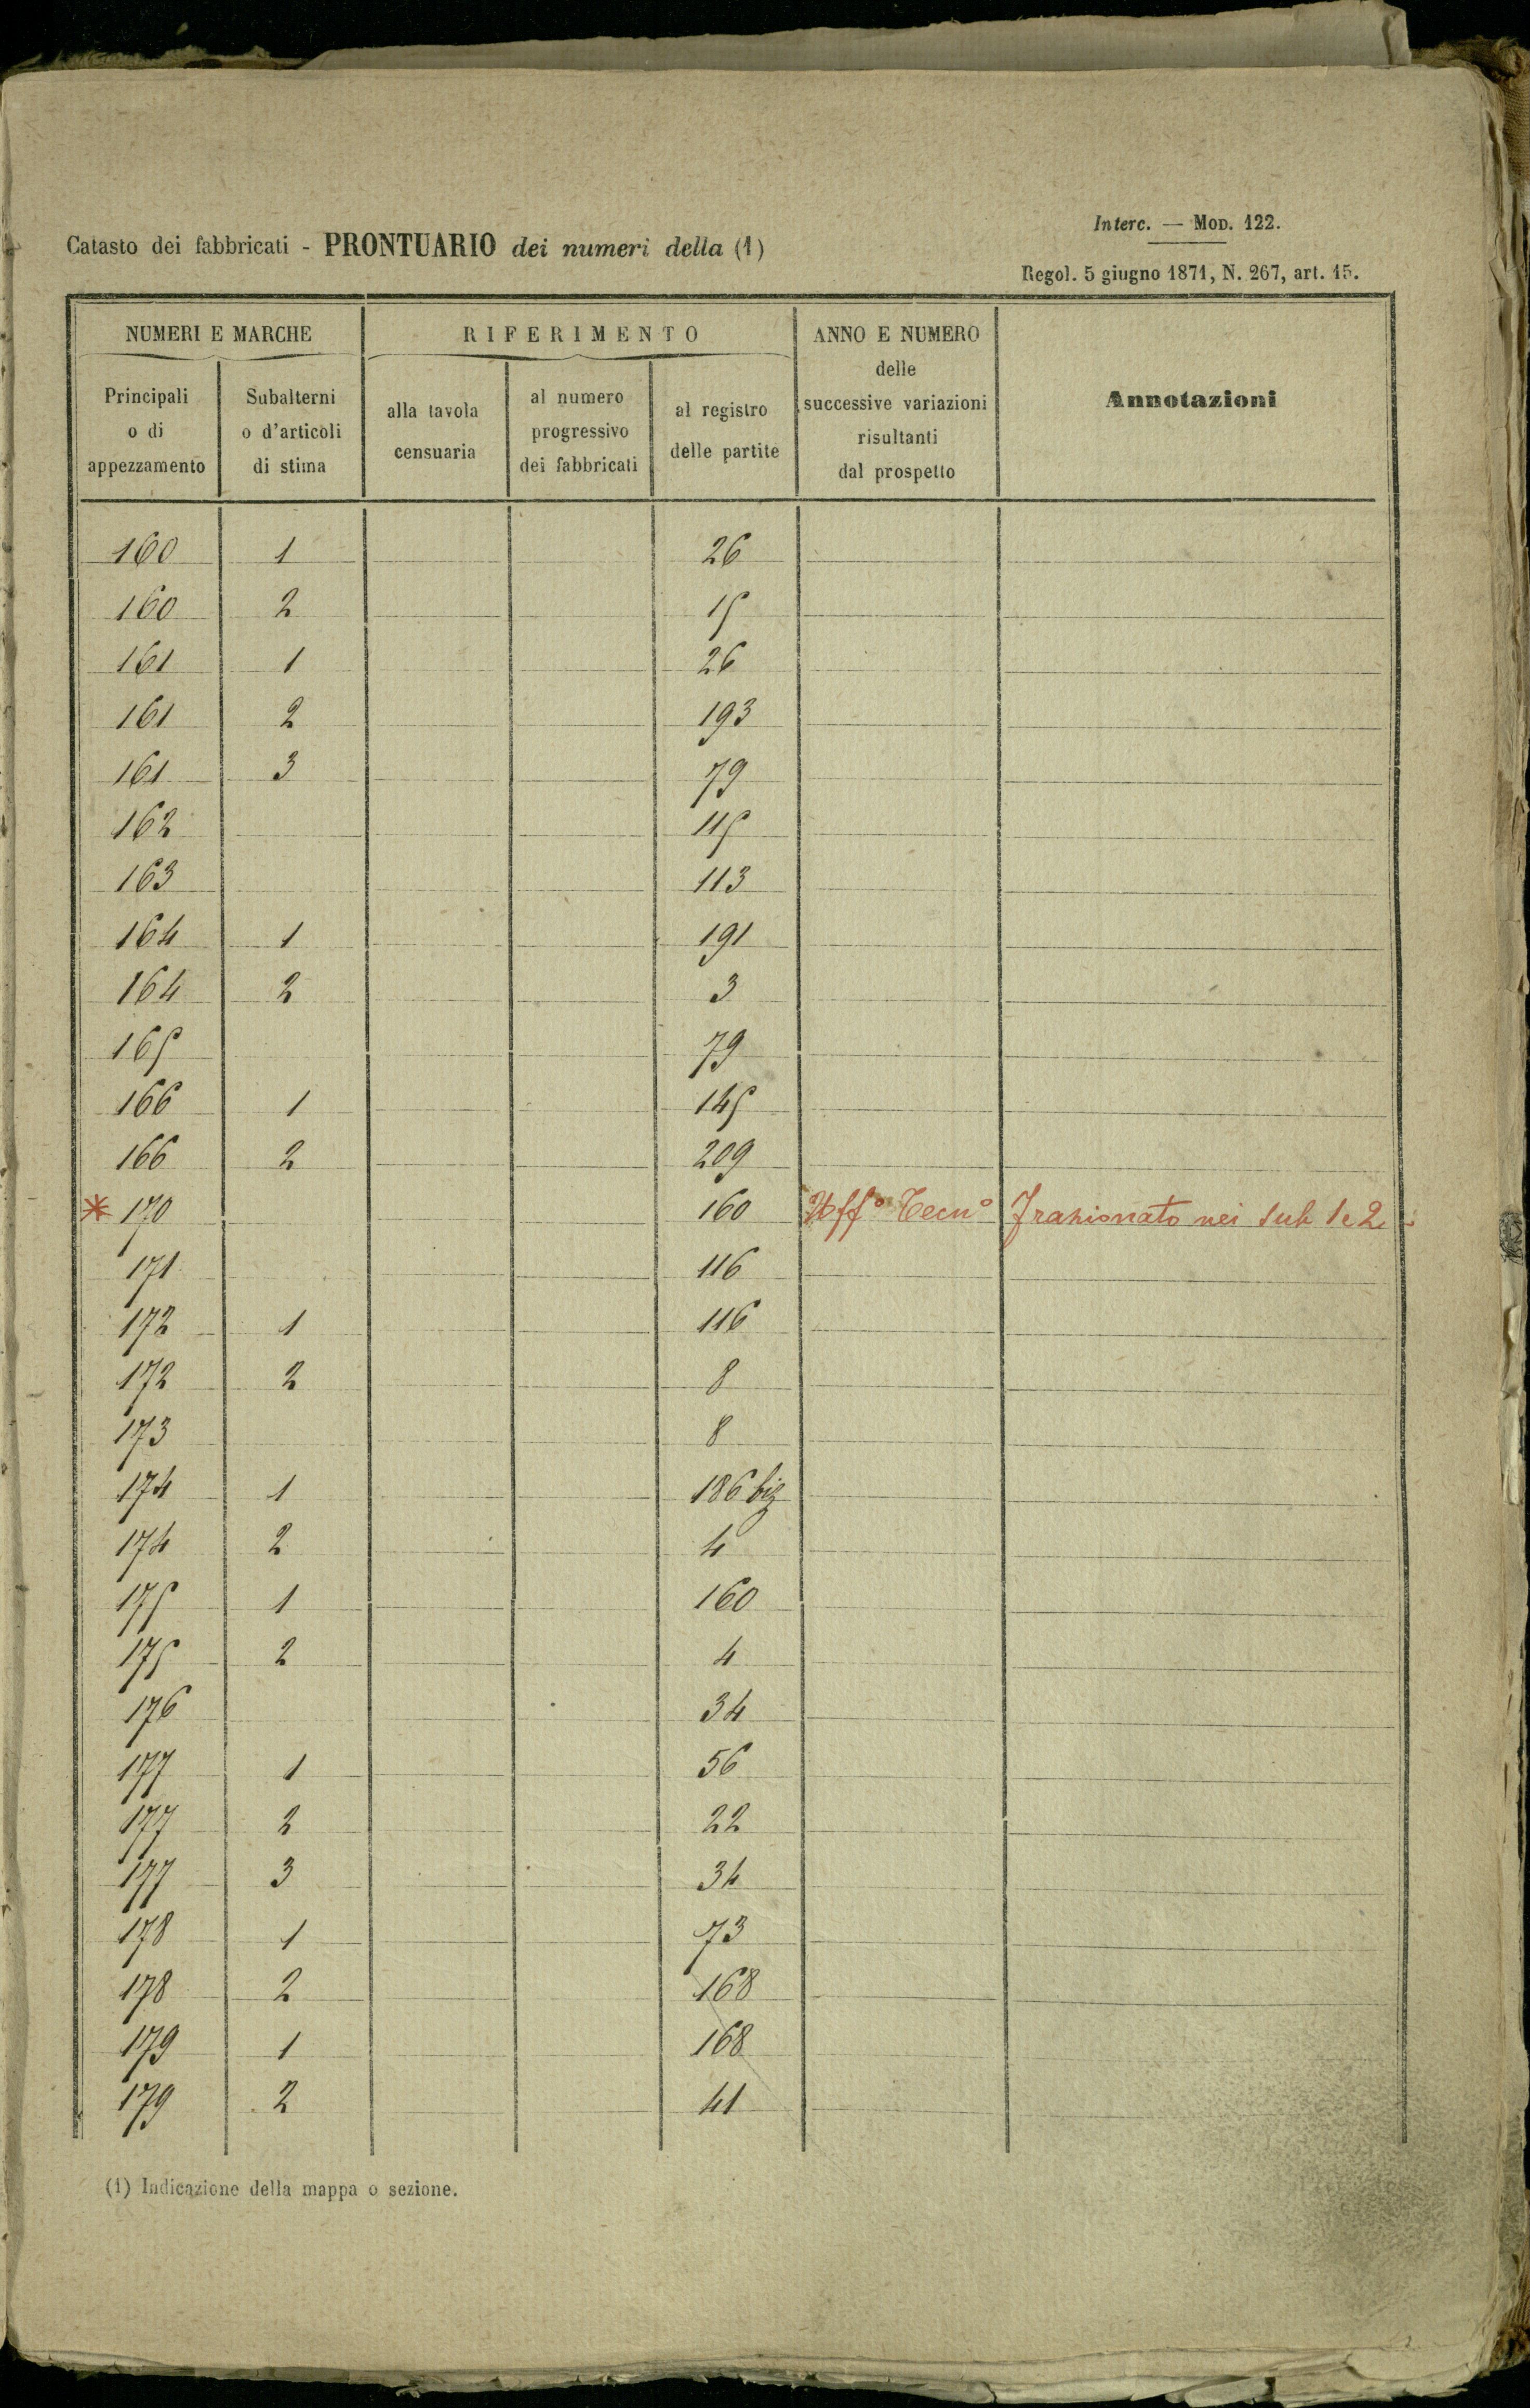 Interc. — Mod. 122.
Catasto dei fabbricati - PRONTUARIO dei numeri della (1)
Regol. 5 giugno 1871, N. 267, art. 15.
NUMERI E MARCHE RIFERIMENTO ANNO E NUMERO
delle
successive variazioni
risultanti
dal prospetto
Annotazioni
Principali
o di
appezzamento
Subalterni
o d'articoli
di stima
alla tavola
censuaria
al numero
progressivo
dei fabbricati
al registro
delle partite
160 1 26
160 2 15
161 1 26
161 2 193
161 3 79
162 115
163 113
164 1 191
164 2 3
165 79
166 1 145
166 2 209
* 170 160 Uff° Tecn° Frazionato nei sub 1 e 2
171 116
172 1 116
172 2 8
173 8
174 1 186 bis
174 2 4
175 1 160
175 2 4
176 34
177 1 56
177 2 22
177 3 34
178 1 73
178 2 168
179 1 168
179 2 41
(1) Indicazione della mappa o sezione.